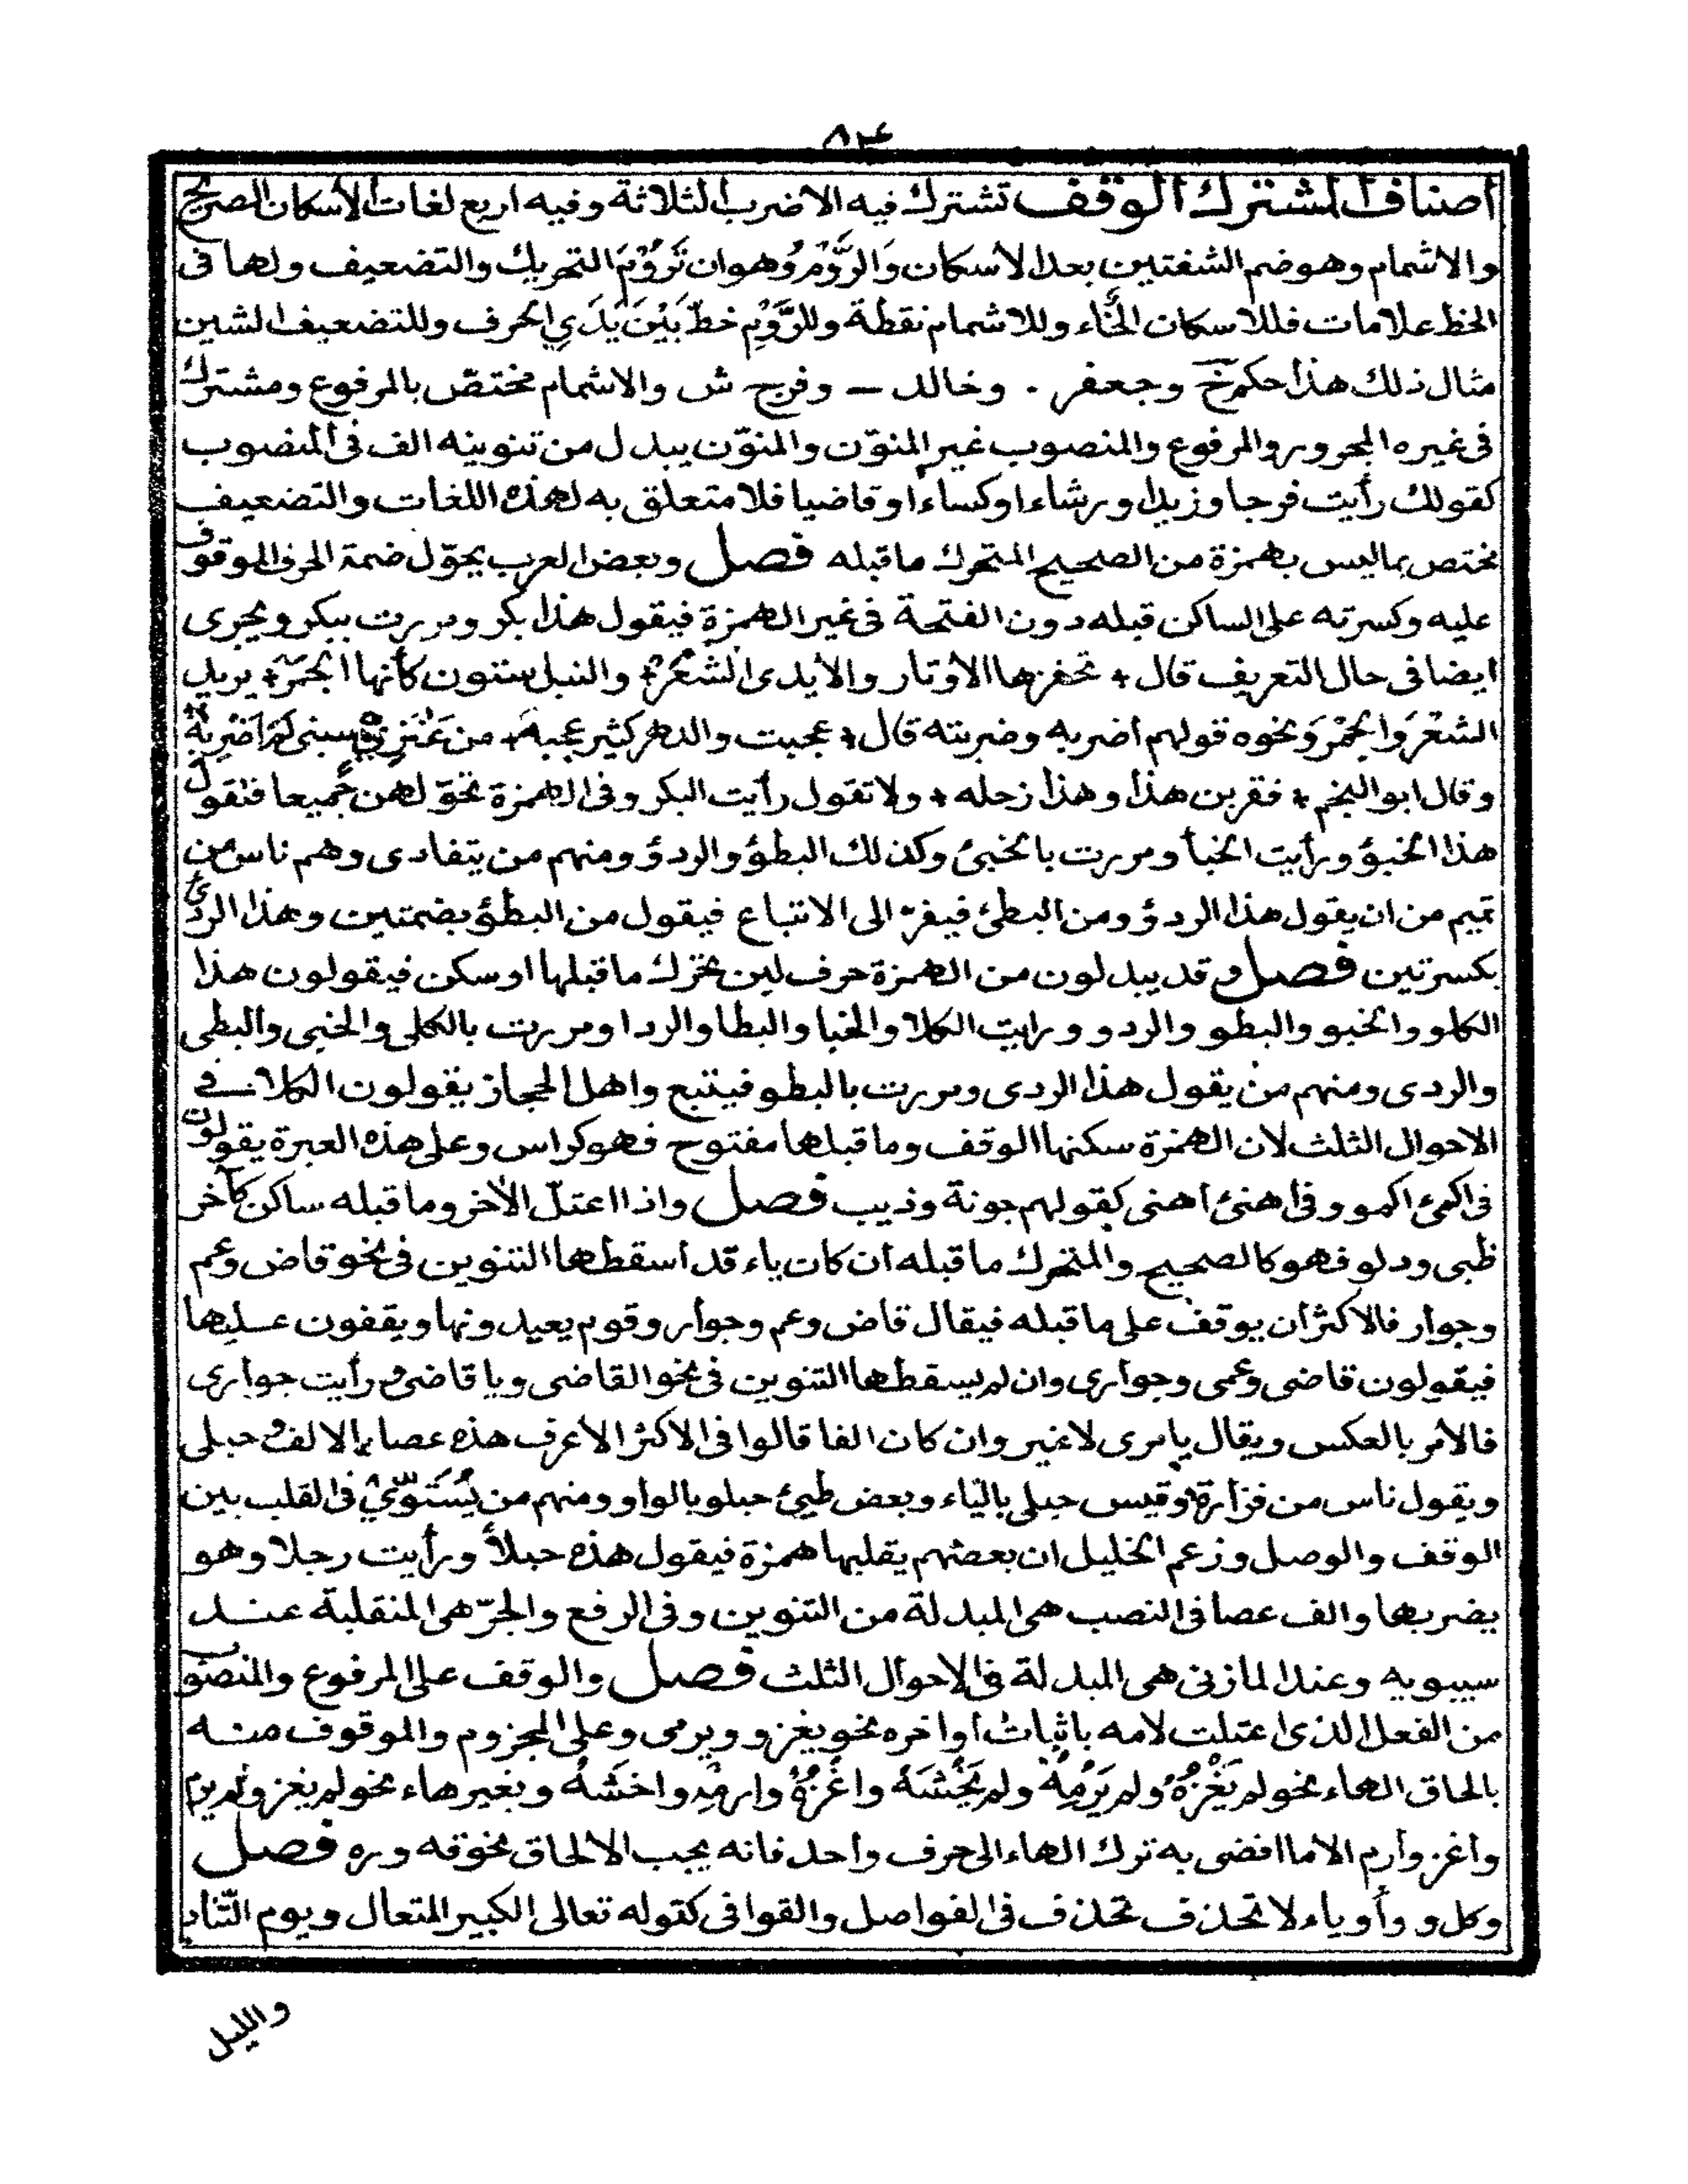 ٨٢٤
أصناف المشترك الوقف تشترك فيه الاضرب الثلاثة وفيه اربع لغات الأسكان الصريح
والاشمام وهو ضم الشفتين بعد الاسكان وَالرَّوْمُ وهو ان تَرُوْمَ التحريك والتضعيف ولها فى
الخط علامات فللاسكان الخَّاء وللاشمام نقطة وللرَّوْمِ خطّ بَيْنَ يَدَيِ الحرف وللتضعيف الشين
مثال ذلك هذا حكم خ وجعفر . وخالد ـ وفرج ش والاشمام مختصّ بالمرفوع ومشترك
فى غيره المجرور والمرفوع والمنصوب غير المنوّن والمنوّن يبدل من تنوينه الف فى المنصوب
كقولك رأيت فرجا وزيدا ورشاءا وكساءا وقاضيا فلا متعلق به لهذه اللغات والتضعيف
مختص بما ليس بهمزة من الصحيح المتحرك ماقبله فصل وبعض العرب يحوّل ضمة الحرف الموقوف
عليه وكسرته على الساكن قبله دون الفتحة فى غير الهمزة فيقول هذا بكر ومررت ببكر ويجرى
ايضا فى حال التعريف قال * تحفزها الأوتار والأيدى الشُّعُرْ * والنبل ستون كأنها الجَمَرْ * يريد
الشعْرَ وَالجَمْرَ ونحوه قولهم أضربه وضربته قال * عجبت والدهر كثير عجبه * من عَنَزِيٍّ سبنى لم أَضْرِبُهْ
وقال ابو النجم * فقربن هذا وهذا زحله * ولا تقول رأيت البكر وفى الهمزة تحوّلهن جميعا فتقول
هذا الخبؤ ورأيت الخبأ ومررت بالخبئ وكذلك البطؤ والردؤ ومنهم من يتفادى وهم ناس من
تميم من ان يقول هذا الردؤ ومن البطئ فيفرّ الى الاتباع فيقول من البطؤ بضمتين وهذا الردئ
بكسرتين فصل وقد يبدلون من الهمزة حرف لين تحرك ماقبلها او سكن فيقولون هذا
الكلو والخبو والبطو والردو ورايت الكلا والخبا والبطا والردا ومررت بالكلى والخبى والبطى
والردى ومنهم من يقول هذا الردى ومررت بالبطو فيتبع واهل الحجاز يقولون الكلا فى
الاحوال الثلث لان الهمزة سكنها الوقف وما قبلها مفتوح فهو كراس وعلى هذه العبرة يقولون
فى اكمئ اكمو وفى اهنئ اهنى كقولهم جونة وذيب فصل واذا اعتلّ الأخر وماقبله ساكن كآخر
ظبى ودلو فهو كالصحيح والمتحرك ماقبله ان كان ياء قد أسقطها التنوين فى نحو قاض وعم
وجوار فالاكثر ان يوقف على ماقبله فيقال قاض وعم وجوار وقوم يعيدونها ويقفون عليها
فيقولون قاضى وعمى وجوارى وان لم يسقطها التنوين فى نحو القاضى ويا قاضى ورأيت جوارى
فالأمر بالعكس ويقال يا مرى لا غير وان كان الفا قالوا فى الاكثر الأعرف هذه عصا بالالف و حبلى
ويقول ناس من فزارة وقيس حبلى بالياء وبعض طيئ حبلو بالواو ومنهم من يُسَوّيْ فى القلب بين
الوقف والوصل وزعم الخليل ان بعضهم يقلبها همزة فيقول هذه حبلأ ورأيت رجلا وهو
يضربها والف عصا فى النصب هى المبدلة من التنوين وفى الرفع والجرّ هى المنقلبة عند
سيبويه وعند المازنى هى المبدلة فى الاحوال الثلث فصل والوقف على المرفوع والمنصوب
من الفعل الذى اعتلت لامه باثبات أواخره نحو يغزو ويرمى وعلى المجزوم والموقوف منه
بالحاق الهاء نحو لم يَغْزُهْ ولم يَرْمِهْ ولم يَخْشَهْ واغْزُهْ وارمِهْ واخشَهْ وبغير هاء نحو لم يغز ولم يرم
واغز وأرم الا ما افضى به ترك الهاء الى حرف واحد فانه يجب الالحاق نحو قه وره فصل
وكل واو وياء لا تحذف تحذف فى الفواصل والقوافى كقوله تعالى الكبير المتعال ويوم التّناد
والليل